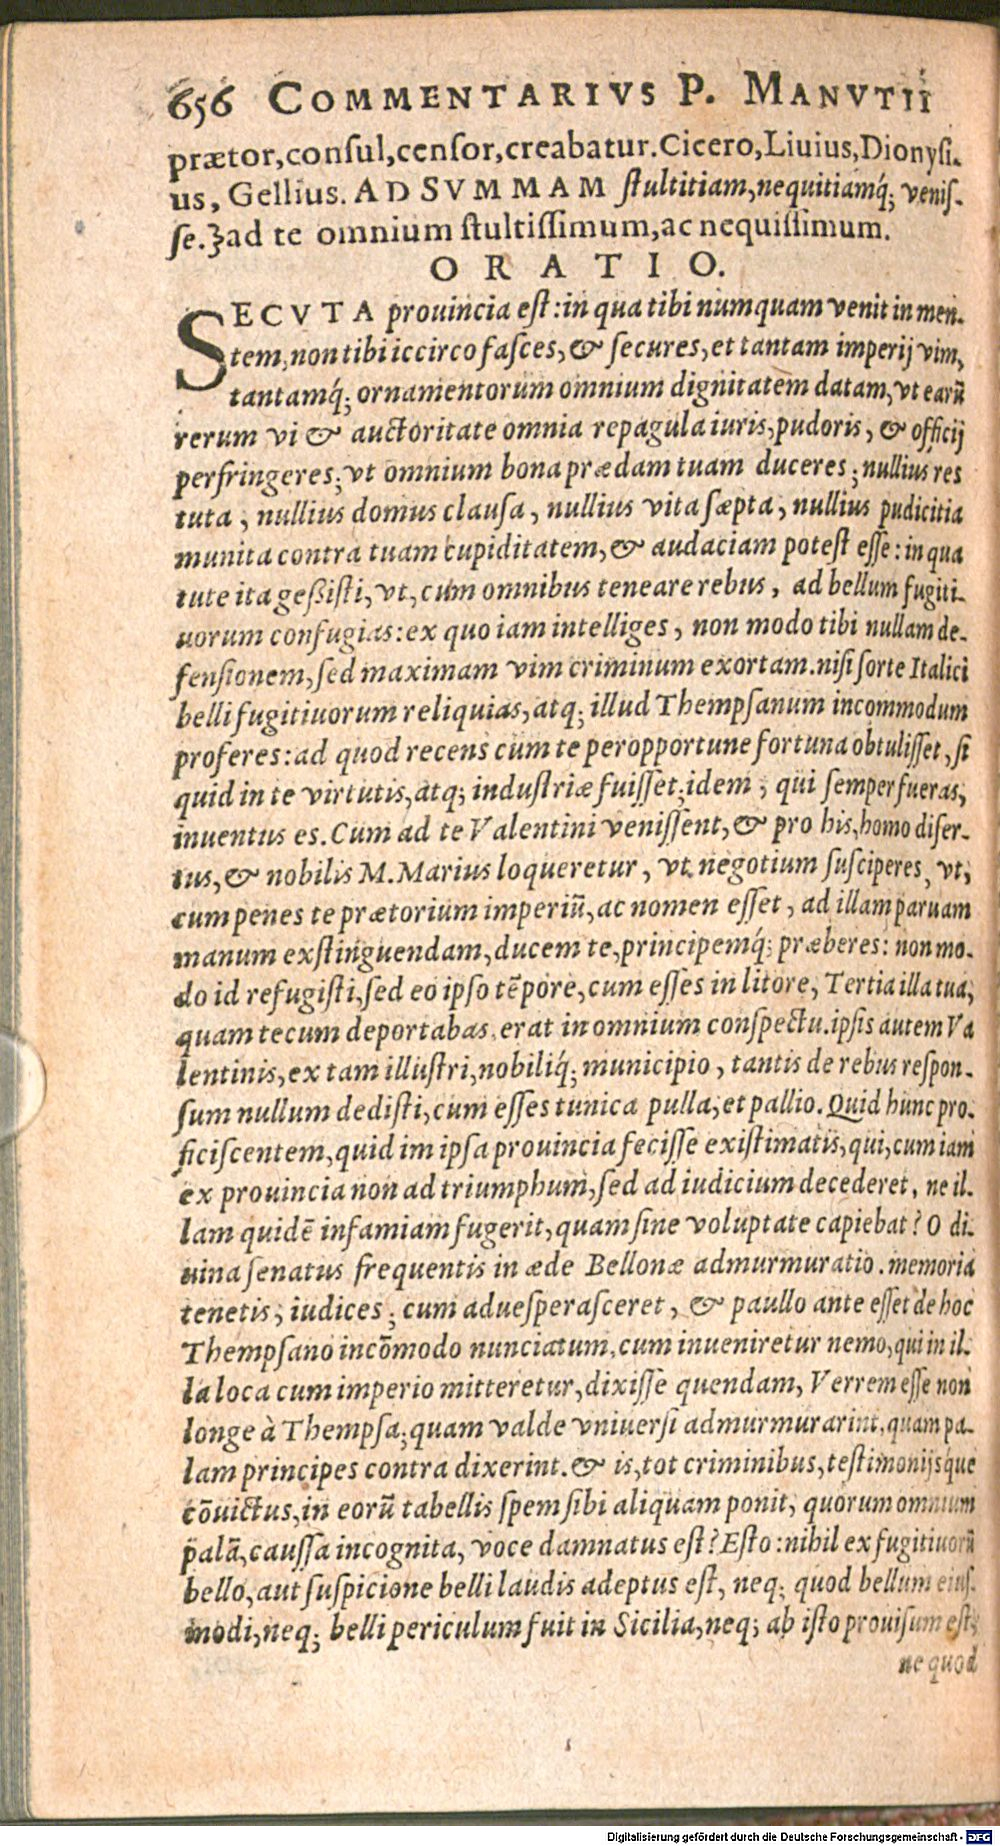 656 COMMENTARIVS P. MANVTII
prætor,conſul,cenſor,creabatur.Cicero,Liuius,Dionyſi-
us, Gellius. AD SVMMAM ſtultitiam,nequitiamq́; veniſ-
ſe.]ad te omnium ſtultiſſimum,ac nequiſſimum.
ORATIO.
SECVTA prouincia eſt:in qua tibi numquam venit in men-
tem,non tibi iccirco faſces,& ſecures,et tantam imperij vim,
tantamq́; ornamentorum omnium dignitatem datam,vt earū
rerum vi & auctoritate omnia repagula iuris,pudoris, & officij
perfringeres;vt omnium bona prædam tuam duceres;nullius res
tuta, nullius domus clauſa, nullius vita ſæpta, nullius pudicitia
munita contra tuam cupiditatem,& audaciam poteſt eſſe:in qua
tute ita geßiſti,vt,cùm omnibus teneare rebus, ad bellum fugiti-
uorum confugias:ex quo iam intelliges, non modo tibi nullam de-
fenſionem,ſed maximam vim criminum exortam.niſi forte Italici
belli fugitiuorum reliquias,atq; illud Thempſanum incommodum
proferes:ad quod recens cum te peropportune fortuna obtuliſſet,ſi
quid in te virtutis,atq; induſtriæ fuiſſet;idem, qui ſemper fueras,
inuentus es. Cum ad te Valentini veniſſent,& pro his,homo diſer-
tus,& nobilis M.Marius loqueretur, vt negotium ſuſciperes, vt,
cum penes te prætorium imperiū,ac nomen eſſet, ad illam paruam
manum exſtinguendam,ducem te,principemq́; præberes: non mo-
do id refugiſti,ſed eo ipſo tēpore,cum eſſes in litore, Tertia illa tua,
quam tecum deportabas, erat in omnium conſpectu.ipſis autem Va
lentinis,ex tam illuſtri,nobiliq́; municipio, tantis de rebus reſpon-
ſum nullum dediſti,cum eſſes tunica pulla,et pallio. Quid hunc pro-
ficiſcentem,quid im ipſa prouincia feciſſe exiſtimatis,qui,cum iam
ex prouincia non ad triumphum,ſed ad iudicium decederet, ne il-
lam quidē infamiam fugerit,quam ſine voluptate capiebat? O di-
uina ſenatus frequentis in æde Bellonæ admurmuratio. memoria
tenetis, iudices; cum adueſperaſceret, & paullo ante eſſet de hoc
Thempſano incōmodo nunciatum,cum inueniretur nemo,qui in il-
la loca cum imperio mitteretur,dixiſſe quendam, Verrem eſſe non
longe à Thempſa;quam valde vniuerſi admurmurarint,quam pa-
lam principes contra dixerint.& is,tot criminibus,teſtimonijsque
cōuictus,in eorū tabellis ſpem ſibi aliquam ponit, quorum omnium
palā,cauſſa incognita, voce damnatus eſt? Eſto: nihil ex fugitiuorū
bello,aut ſuſpicione belli laudis adeptus eſt, neq; quod bellum eiuſ-
modi,neq; belli periculum fuit in Sicilia,neq; ab iſto prouiſum eſt,
ne quod
Digitalisierung gefördert durch die Deutsche Forschungsgemeinschaft - DFG